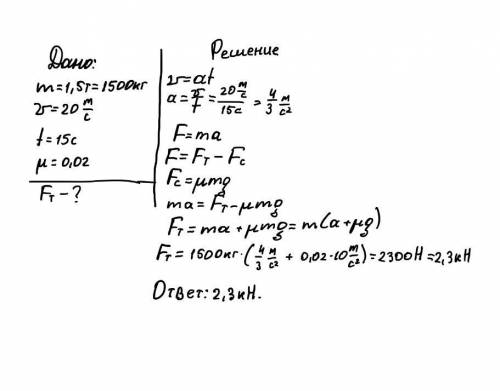 Дано:
m=1,5т=1500кг
v=20 м/с
t=15с
μ=0,02
Fт-?
Решение
v=at
a=v/t=20 м/с/15с=4/3 м/с²
F=ma
F=Fт-Fc
Fc=μmg
ma=Fт-μmg
Fт=ma+μmg=m(a+μg)
Fт=1500кг·(4/3 м/с²+0,02·10 м/с²)=2300Н=2,3кН
Ответ: 2,3кН.